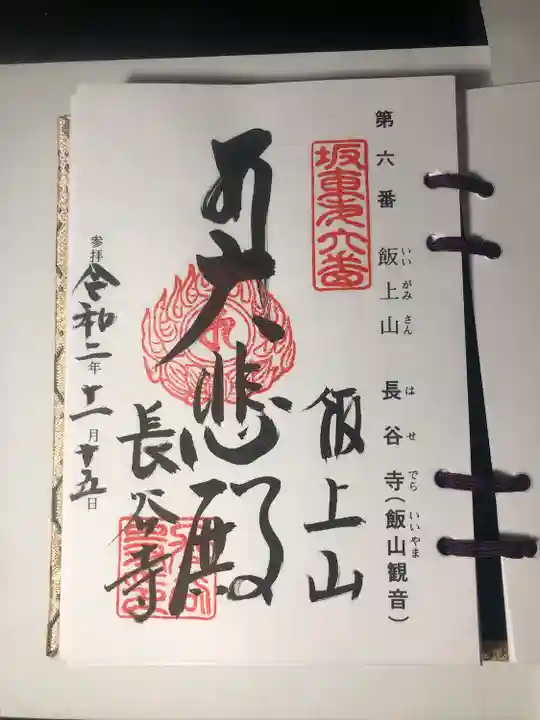 第六番 飯上山 長谷寺(飯山観音)
いいがみさん はせでら いいやま
坂東第六番
飯上山
大悲殿
長谷寺
参拝 令和二年十一月十五日